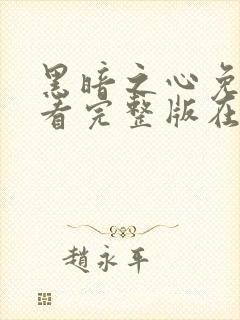 黑暗之心免
看完整版在
趙永平